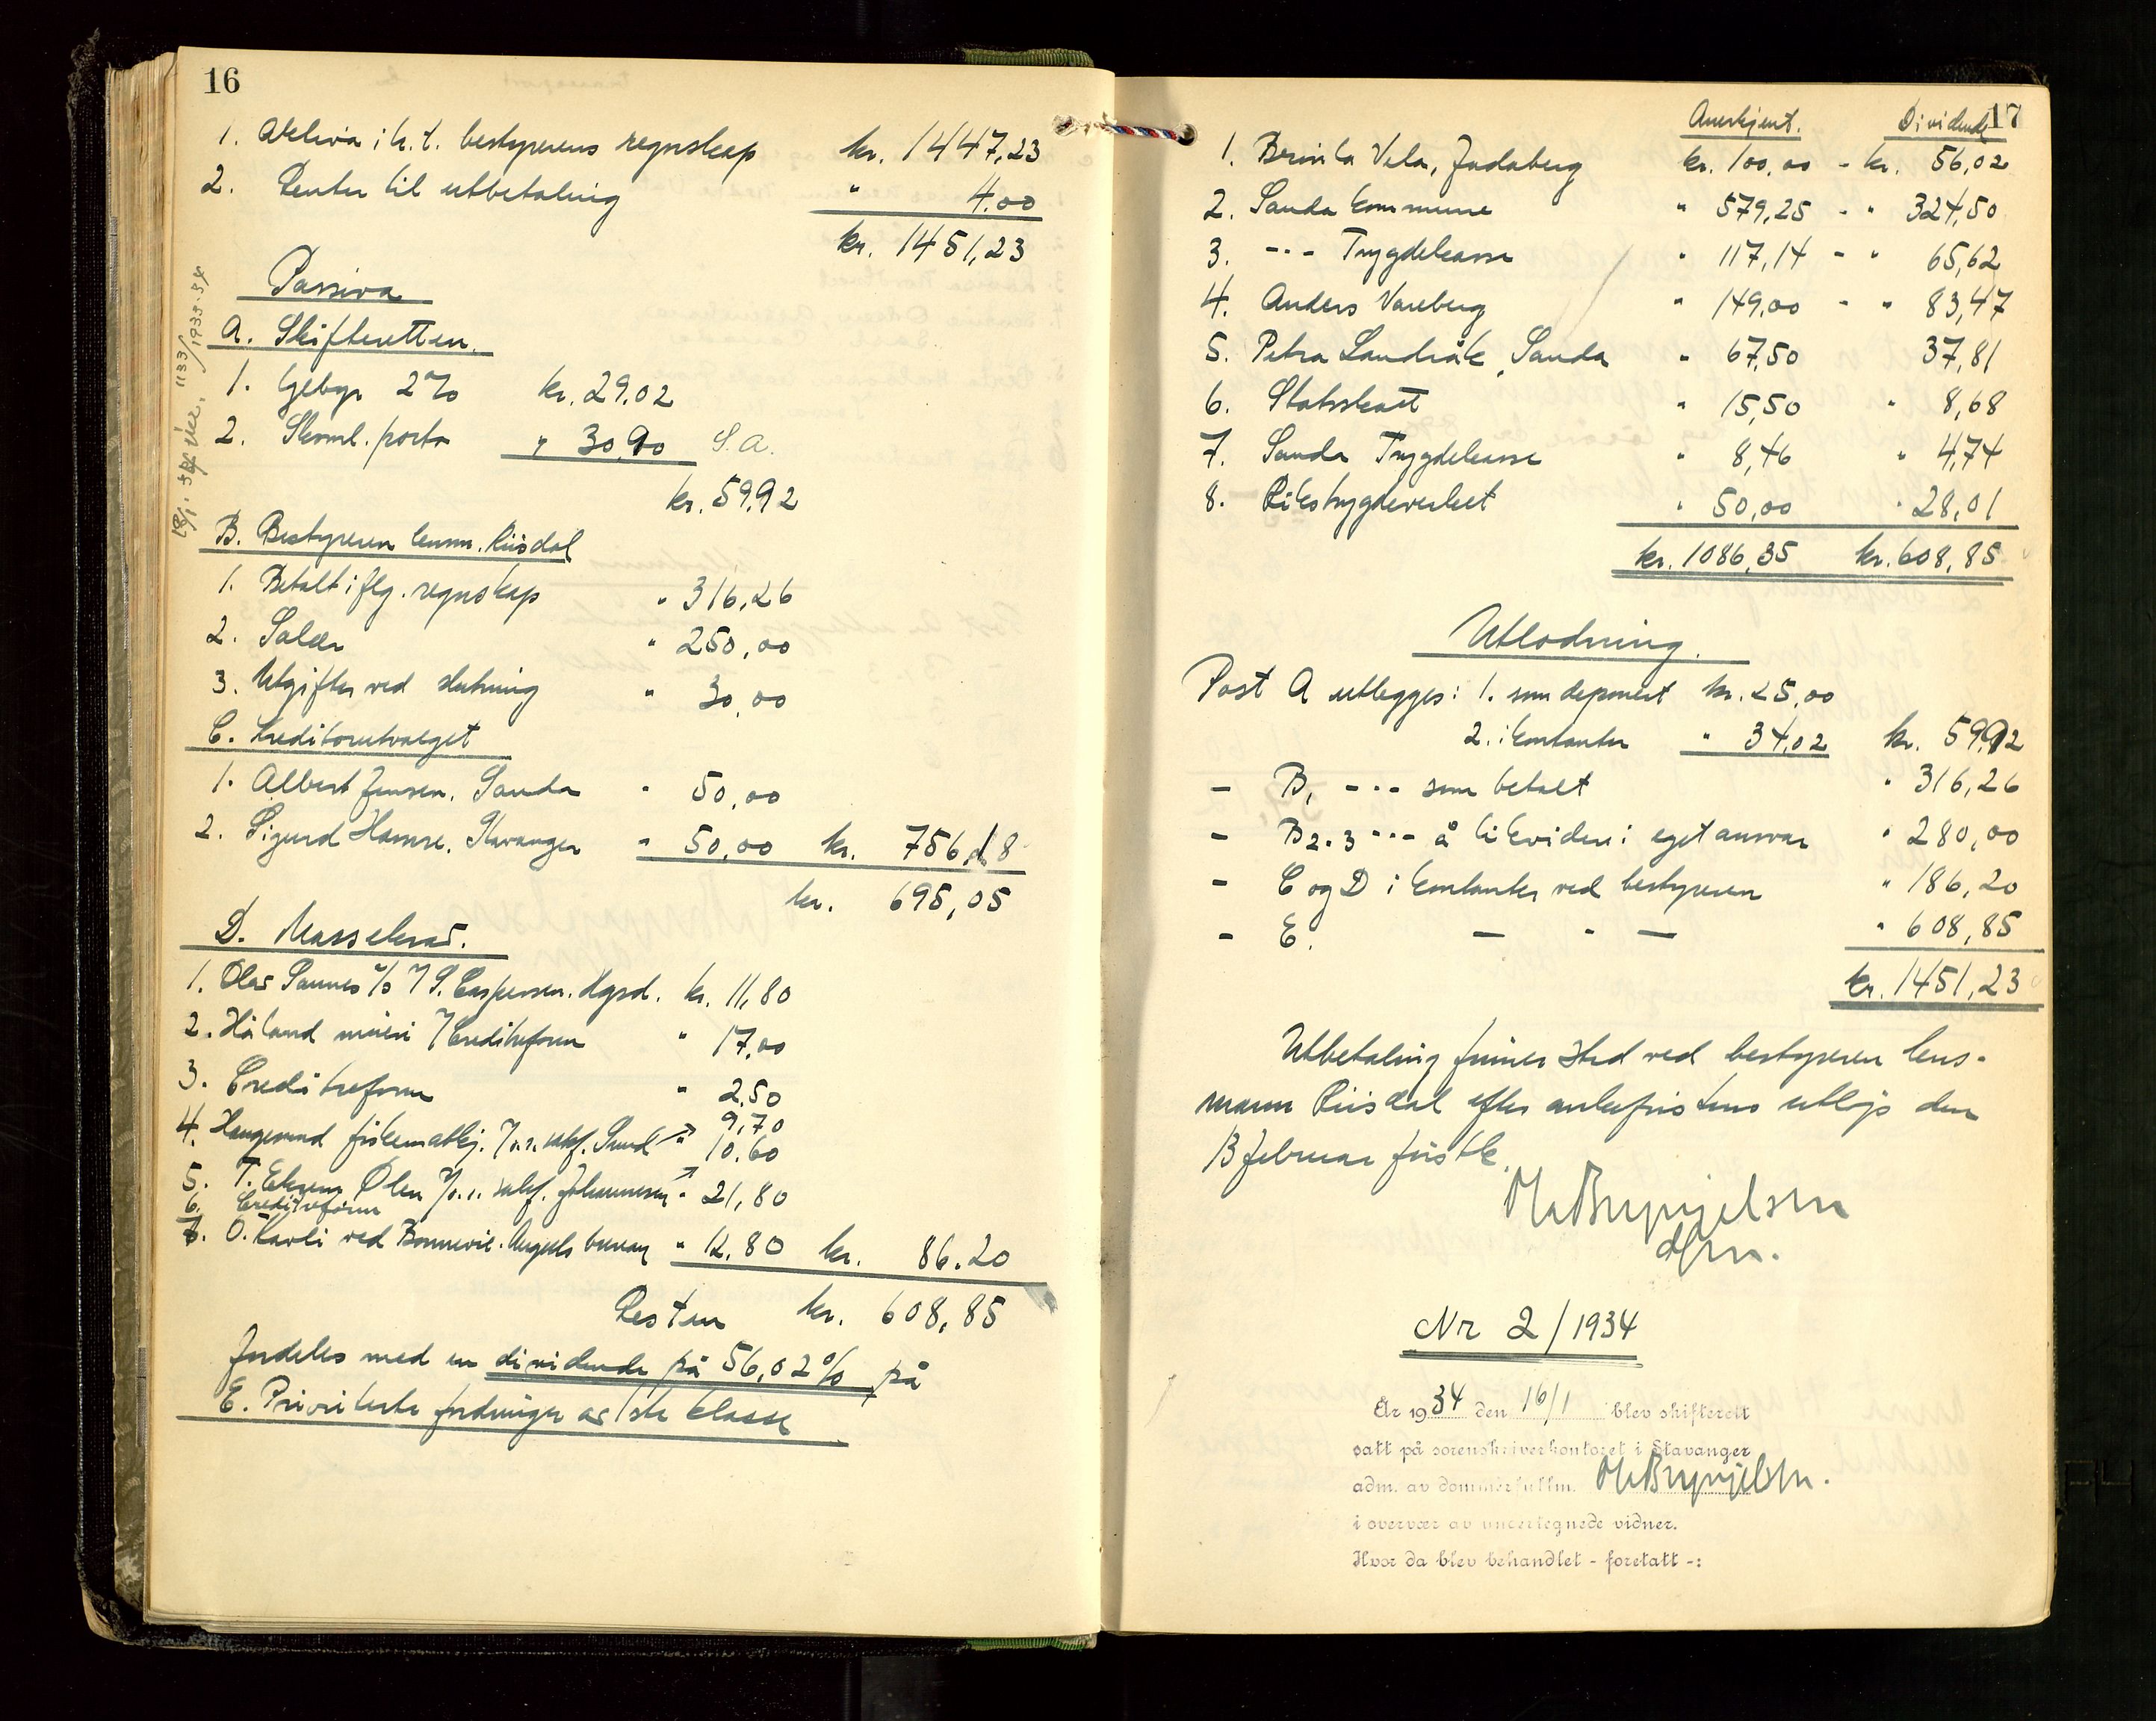 16
1. Aktiva i h.t. bestyrerens regnskap kr. 1447,23
2. Renter til utbetaling " 4.00
kr. 1451,23
Passiva
A. Skifteretten.
1. Gebyr 2% kr. 29.02
2. Skvml. porto " 30,90 S.A.
kr. 59.92
B. Bestyreren lensm. Riisdal
1. Betalt iflg. regnskap " 316,26
2. Salær " 250,00
3. Utgifter ved slutning " 30,00
C. Kreditorutvalget
1. Albert Jensen, Sauda " 50,00
2. Sigurd Hamre, Stavanger " 50,00 kr. 756,18
kr. 695,05
D. Massekrav.
1. Olav Sannes % S. Caspersen. Hgsd. kr. 11,80
2. Håland mieri / Creditreform " 17,00
3. Creditreform " 2.50
4. Haugesund fiskematkj. / o.r. sakf. Sund " 9,70
10.60
5. T. Ekreng Ølen / o.r. sakf. Johannesen " 21,80
6. Creditreform
O. Kavli ved Bonnevie. Angels bureau " 12.80 kr. 86.20
Resten kr. 608,85
fordeles med en dividende på 56,02% på
E. Priviligerte fordringer av 1ste klasse
1133/1933-34
17
Anerkjent. Dividende
1. Brinla Vela, Jadaberg kr. 100,00 - kr. 56,02
2. Sauda kommune " 579,25 - " 324,50
3. --- Trygdekasse " 117,14 - " 65,62
4. Anders Vareberg " 149,00 - " 83,47
5. Petra Sandvik, Sauda " 67,50 37,81
6. Statsskatt " 15,50 " 8,68
7. Sauda Trygdekasse " 8,46 " 4,74
8. Rikstrygdeverket " 50,00 " 28,01
kr. 1086,35 kr. 608,85
Utlodning.
Post A utlegges: 1. som deponert kr. 25,00
2. i kontanter " 34,02 kr. 59,92
- B, --- som betalt " 316,26
- B2.3 --- å likvidere i eget ansvar " 280,00
- C og D i kontanter ved bestyreren " 186,20
- E. — " — " 608,85
kr. 1451,23
Utbetaling finner sted ved bestyreren lens-
mann Riisdal efter ankefristens utløp den
13 februar førstk.
O Brynjelsen
dfm.
Nr 2/1934
År 1934 den 16/1 blev skifterett
satt på sorenskriverkontoret i Stavanger
adm. av dommerfullm. O Brynjelsen.
i overvær av undertegnede vidner.
Hvor da blev behandlet - foretatt -: